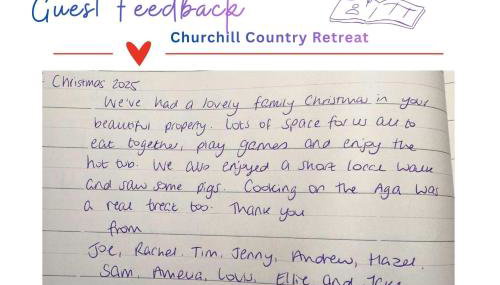 Guest Feedback
Churchill Country Retreat
Christmas 2025
We've had a lovely family Christmas in your
beautiful property. Lots of space for us all to
eat together, play games and enjoy the
hot tub. We also enjoyed a short local walk
and saw some pigs. Cooking on the Aga was
a real treat too. Thank you
from
Joe, Rachel, Tim, Jenny, Andrew, Hazel,
Sam, Amelia, Louis, Ellie and